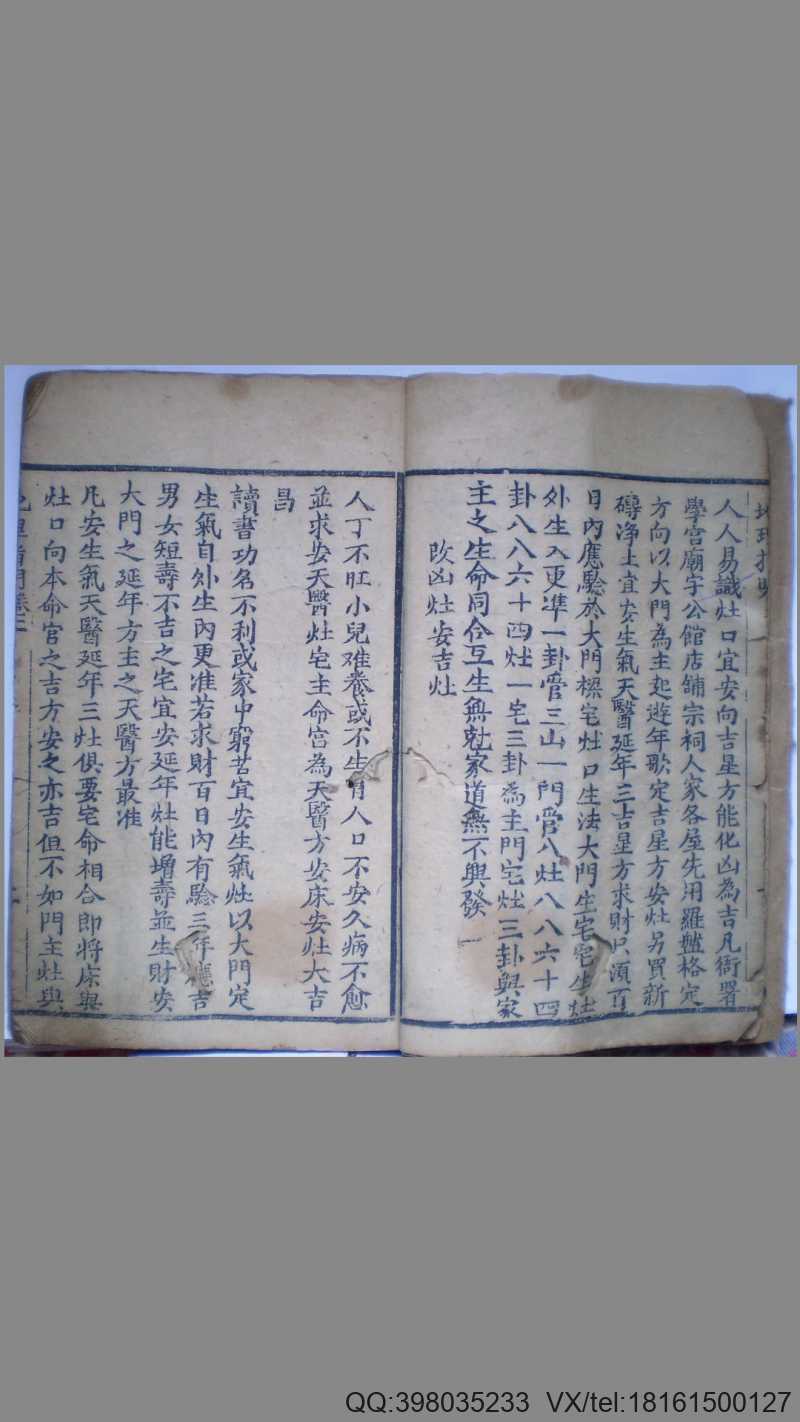 人人易識灶口宜安向吉星方能化凶為吉凡衙署
學宫廟宇公館店舖宗祠人家各屋先用羅盤格定
方向以大門為主起遊年歌定吉星方安灶另買新
磚净土宜安生氣天醫延年三吉星方求財只須百
日内應驗於大門樑宅灶口生法大門生宅宅生灶
外生入更凖一卦管三山一門管八灶八八六十四
卦八八六十四灶一宅三卦為主門宅灶三卦與家
主之生命同合互生無尅家道無不興發
改凶灶安吉灶
人丁不旺小兒难養或不生育人口不安久病不愈
並求安天醫灶宅主命宫為天醫方安床安灶大吉
昌
讀書功名不利或家中窮苦宜安生氣灶以大門定
生氣自外生内更准若求財百日内有驗三年應吉
男女短壽不吉之宅宜安延年灶能增壽並生財安
大門之延年方主之天醫方最准
凡安生氣天醫延年三灶俱要宅命相合即將床與
灶口向本命官之吉方安之亦吉但不如門主灶與
QQ:398035233 VX/tel:18161500127